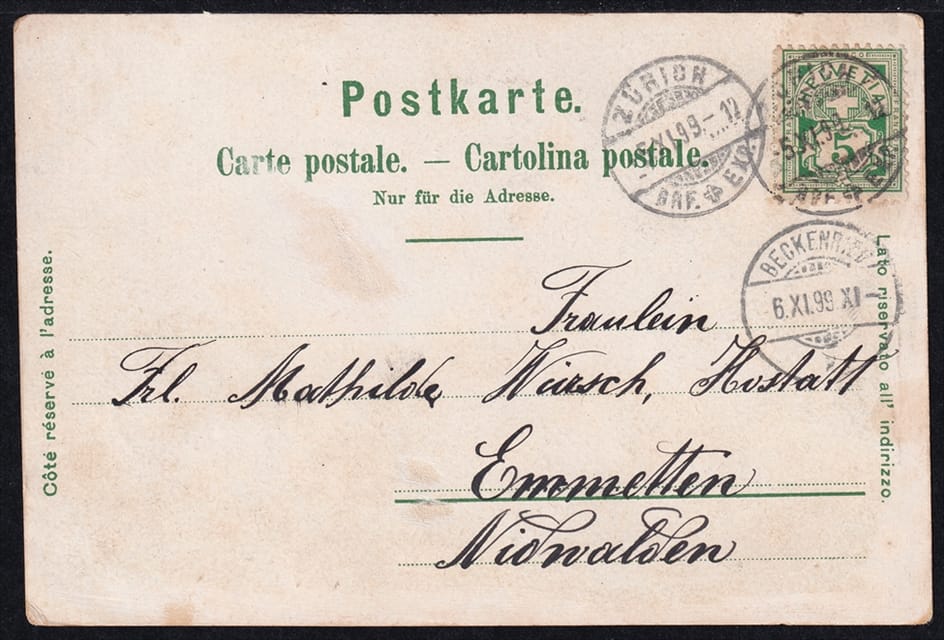 Postkarte.
Carte postale. — Cartolina postale.
Nur für die Adresse.
ZÜRICH
5.XI.99.-12
BRF. EXP.
HELVETIA
5
BECKENRIED
6.XI.99 XI-
Côté réservé à l'adresse.
Lato riservato all' indirizzo.
Fraulein
Frl. Mathilde Würsch, Hostatt
Emmetten
Nidwalden